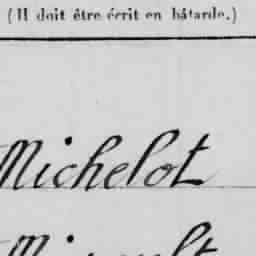 (Il doit être écrit en bâtarde.)
Michelot